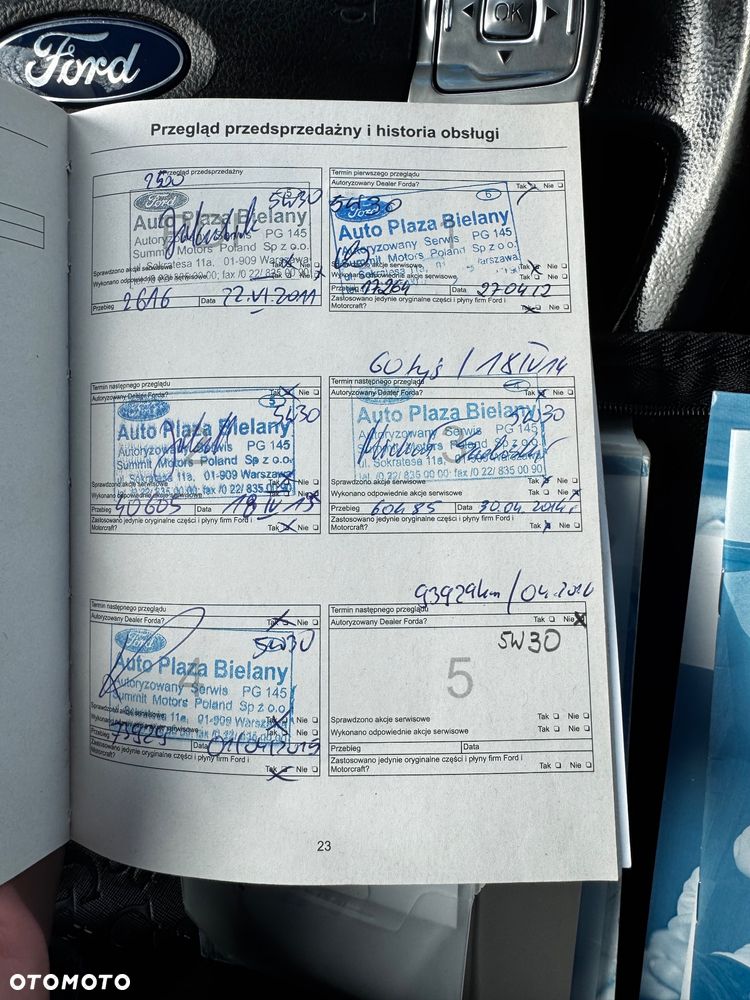 OK
Ford
Przegląd przedsprzedażny i historia obsługi
Przegląd przedsprzedażny
5W30
Ford
Auto Plaza Bielany
Autoryzowany Serwis PG 145
Summit Motors Poland Sp z o.o.
ul. Sokratesa 11a, 01-909 Warszawa
Sprawdzono akcje serwisowe Tak Nie
Wykonano odpowiednie akcje serwisowe Tak Nie
Przebieg 2616 Data 22.VI.2011
Termin pierwszego przeglądu
Autoryzowany Dealer Forda? Tak Nie
5W30
Ford
6
Auto Plaza Bielany
Autoryzowany Serwis PG 145
Summit Motors Poland Sp z o.o.
ul. Sokratesa 11a, Warszawa
Sprawdzono akcje serwisowe Tak Nie
Wykonano odpowiednie akcje serwisowe Tak Nie
Przebieg 17264 Data 270412
Zastosowano jedynie oryginalne części i płyny firm Ford i
Motorcraft? Tak Nie
Termin następnego przeglądu
Autoryzowany Dealer Forda? Tak Nie
5W30
Auto Plaza Bielany
Autoryzowany Serwis PG 145
Summit Motors Poland Sp z o.o.
ul. Sokratesa 11a, 01-909 Warszawa
fax /0 22/ 835 00 90
Sprawdzono akcje serwisowe Tak Nie
Wykonano odpowiednie akcje serwisowe Tak Nie
Przebieg 40605 Data 18 IV 13
Zastosowano jedynie oryginalne części i płyny firm Ford i
Motorcraft? Tak Nie
60 tyś / 18 IV 14
Termin następnego przeglądu
Autoryzowany Dealer Forda? Tak Nie
5W30
Auto Plaza Bielany
3
Autoryzowany Serwis PG 145
Summit Motors Poland Sp z o.o.
ul. Sokratesa 11a, 01-909 Warszawa
fax /0 22/ 835 00 90
Sprawdzono akcje serwisowe Tak Nie
Wykonano odpowiednie akcje serwisowe Tak Nie
Przebieg 60485 Data 30.04.2014r
Zastosowano jedynie oryginalne części i płyny firm Ford i
Motorcraft? Tak Nie
Termin następnego przeglądu
Autoryzowany Dealer Forda? Tak Nie
5W30
Ford
Auto Plaza Bielany
4
Autoryzowany Serwis PG 145
Summit Motors Poland Sp z o.o.
ul. Sokratesa 11a, 01-909 Warszawa
Sprawdzono akcje serwisowe Tak Nie
Wykonano odpowiednie akcje serwisowe Tak Nie
Przebieg 73929 Data 01/04/2015
Zastosowano jedynie oryginalne części i płyny firm Ford i
Motorcraft? Tak Nie
93929km / 04.2016
Termin następnego przeglądu
Autoryzowany Dealer Forda? Tak Nie
5W30
5
Sprawdzono akcje serwisowe Tak Nie
Wykonano odpowiednie akcje serwisowe Tak Nie
Przebieg Data
Zastosowano jedynie oryginalne części i płyny firm Ford i
Motorcraft? Tak Nie
23
OTOMOTO